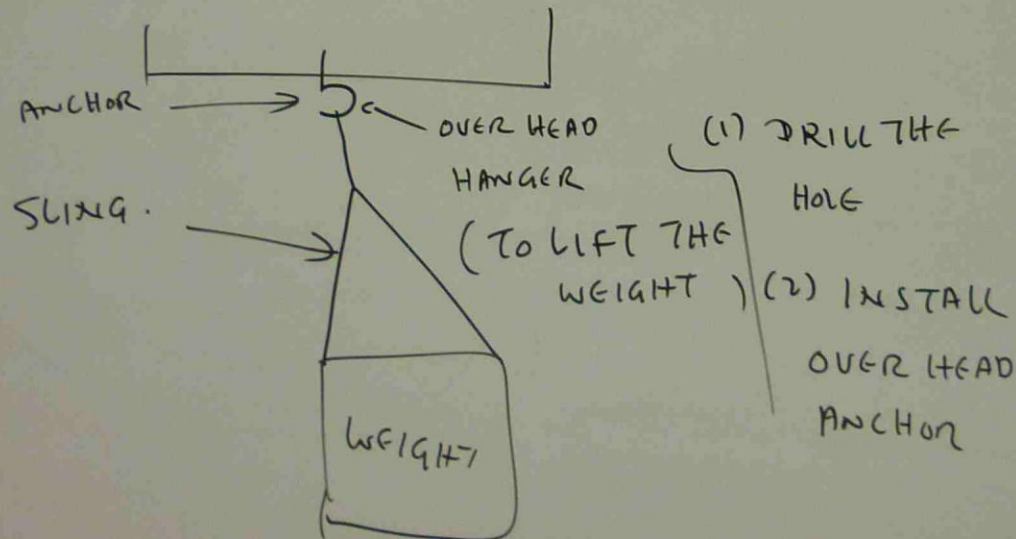 ANCHOR
OVER HEAD
HANGER
(TO LIFT THE
WEIGHT)
SLING.
WEIGHT
(1) DRILL THE
HOLE
(2) INSTALL
OVER HEAD
ANCHOR